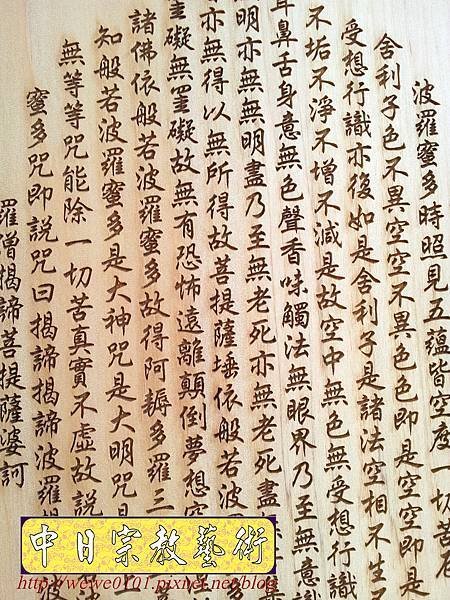 波羅蜜多時照見五蘊皆空度一切苦厄
舍利子色不異空空不異色色即是空空即是
受想行識亦復如是舍利子是諸法空相不生不
不垢不淨不增不減是故空中無色無受想行
耳鼻舌身意無色聲香味觸法無眼界乃至無意
明亦無無明盡乃至無老死亦無老死盡
亦無得以無所得故菩提薩埵依般若波
罣礙無罣礙故無有恐怖遠離顛倒夢想究
諸佛依般若波羅蜜多故得阿耨多羅三
知般若波羅蜜多是大神咒是大明咒是
無等等咒能除一切苦真實不虛故說
蜜多咒即說咒曰揭諦揭諦波羅揭
羅僧揭諦菩提薩婆訶
中日宗教藝術
http://weiwe0101.pixnet.net/blog